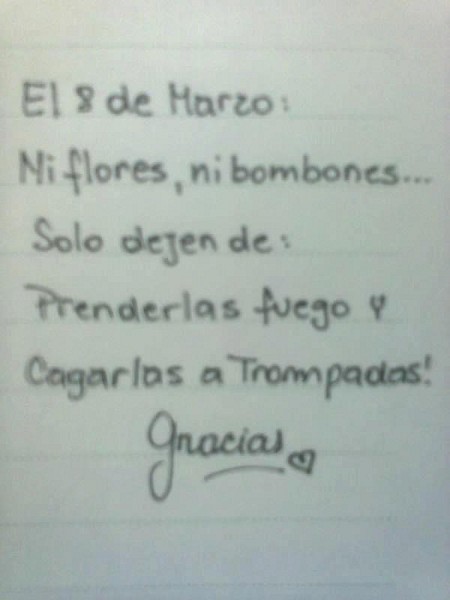 El 8 de Marzo:
Ni flores, ni bombones...
Solo dejen de:
Prenderlas fuego y
Cagarlas a Trompadas!
Gracias